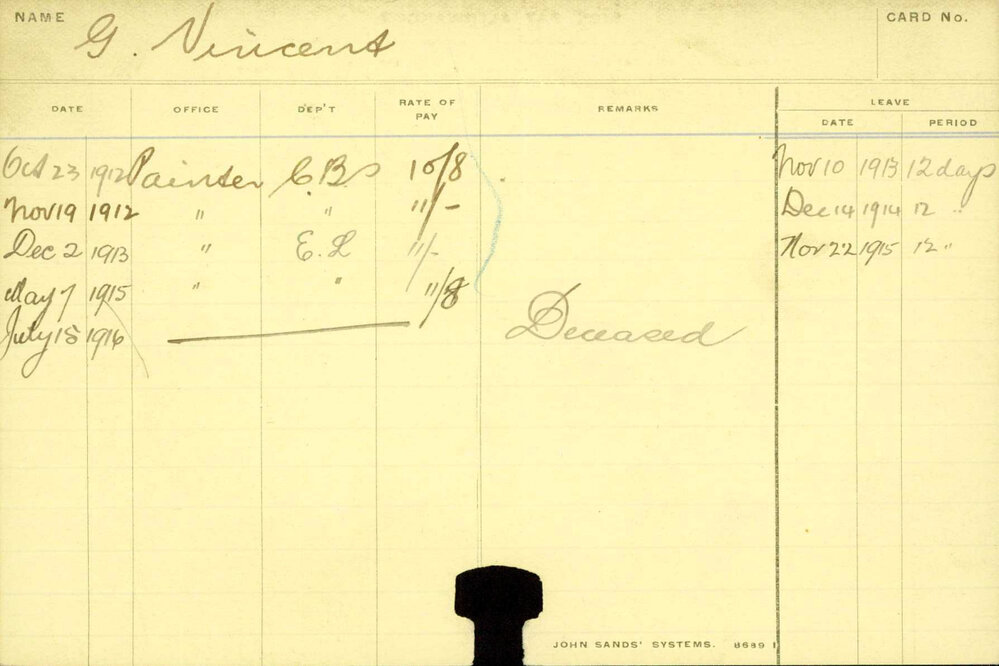 NAME G. Vincent CARD No.
DATE OFFICE DEP'T RATE OF PAY REMARKS LEAVE
DATE PERIOD
Oct 23 1912 Painter C.Bs 10/8 Nov 10 1913 12 days
Nov 19 1912 " " 11/- Dec 14 1914 12 "
Dec 2 1913 " E.L 11/- Nov 22 1915 12 "
May 7 1915 " " 11/8
July 15 1916 Deceased
JOHN SANDS' SYSTEMS. 8689